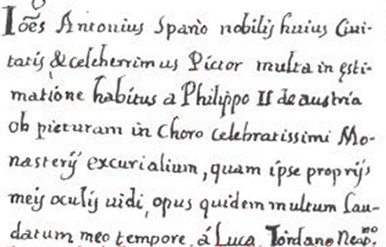 Ioẽs Antonius Spanò nobilis huius Ciui-
tatis & celeherrimus Pictor multa in ęsti-
matione habitus a Philippo II de austria
ob picturam in Choro celebratissimi Mo-
nasterij excurialium, quam ipse proprijs
meis oculis uidi, opus quidem multum lau-
datum meo tempore, á Luca Iordano Neap.no